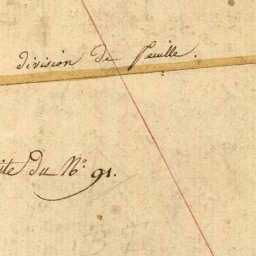 division de feuille.
ite du N° 91.